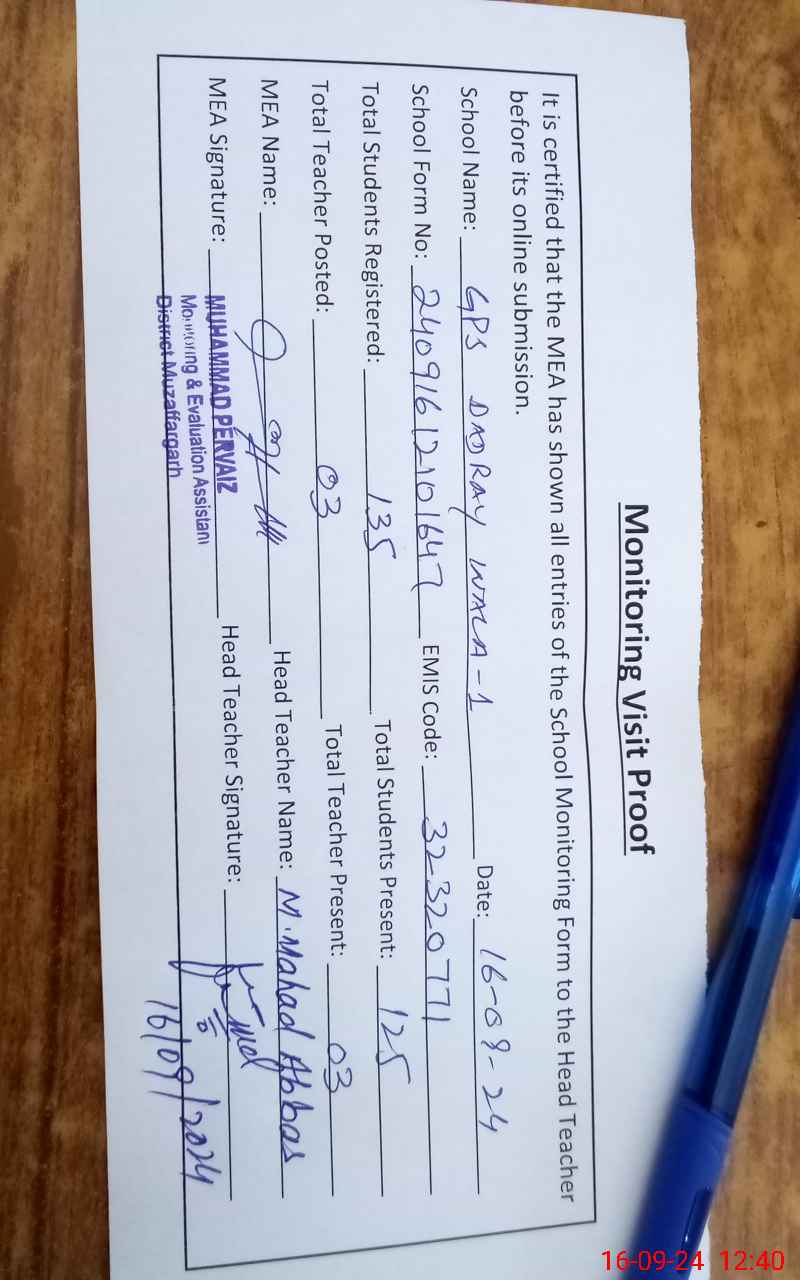 Monitoring Visit Proof
It is certified that the MEA has shown all entries of the School Monitoring Form to the Head Teacher
before its online submission.
School Name: GPS DADRAY WALA-1 Date: 16-09-24
School Form No: 24091612101647 EMIS Code: 32320771
Total Students Registered: 135 Total Students Present: 125
Total Teacher Posted: 03 Total Teacher Present: 03
MEA Name: Head Teacher Name: M. Mahad Abbas
MEA Signature: Head Teacher Signature:
MUHAMMAD PERVAIZ
Monitoring & Evaluation Assistant
District Muzaffargarh
16/09/2024
16-09-24 12:40